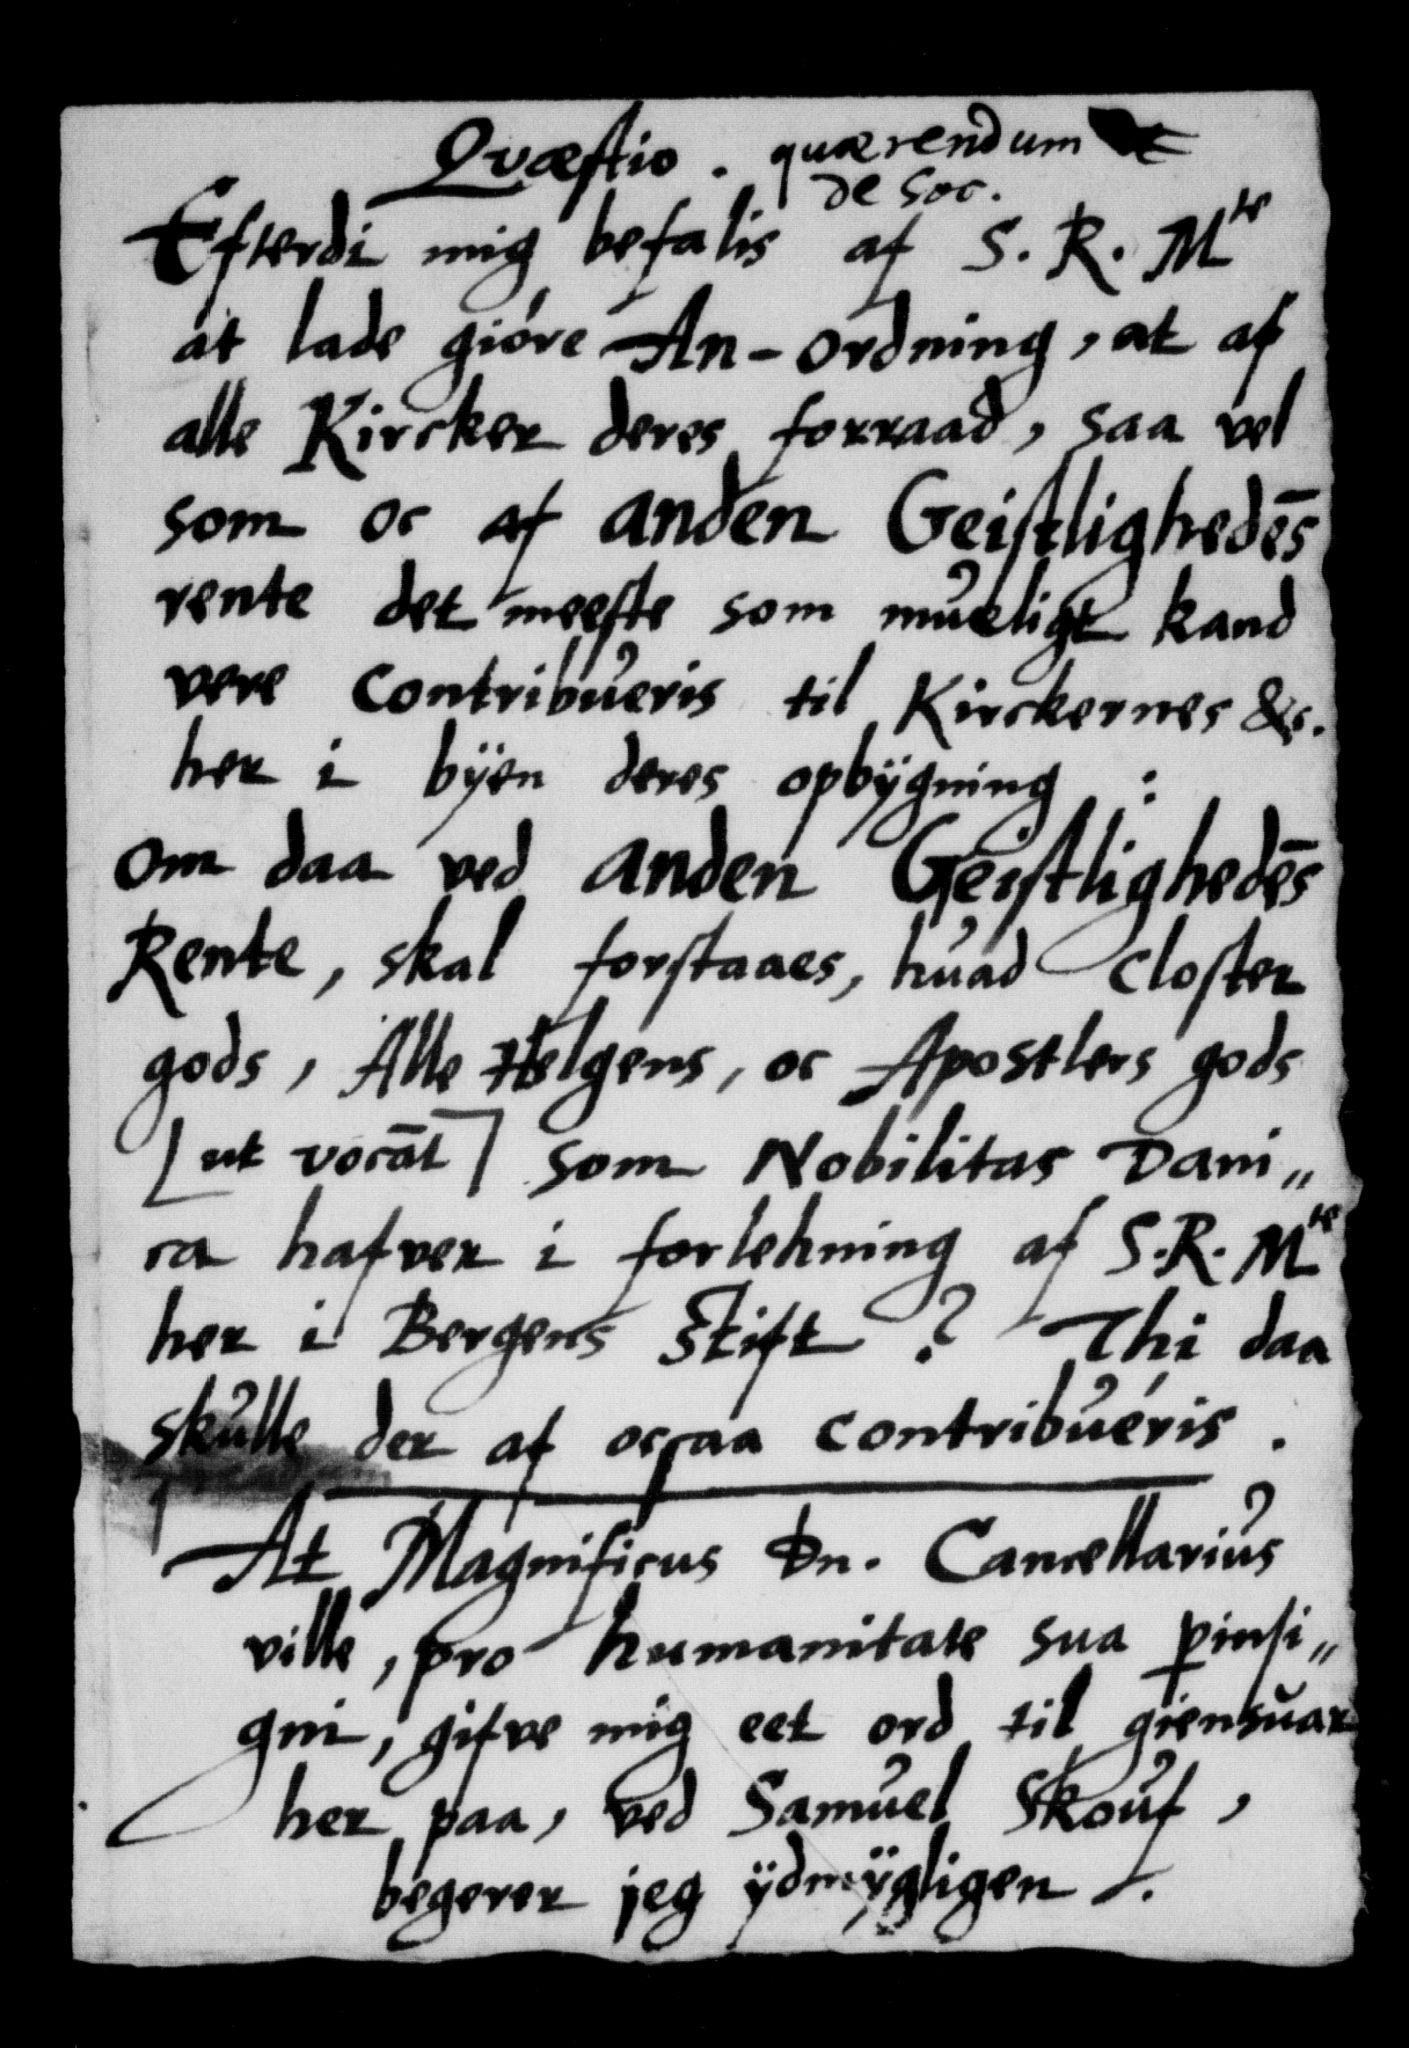 Qvæstio. quærendum
de soc.
Efterdi mig befalis af S. R. Mte
at lade gióre An-ordning, at af
alle Kircker deres forraad, saa vel
som oc af anden Geistlighedēs
rente det meeste som mueligt kand
vere contribueris til Kirckernes &c.
her i bÿen deres opbÿgning :
om daa ved anden Geistlighedēs
Rente, skal forstaaes, huad Closter
gods, Alle Helgens, oc Apostlers gods
[ut vocāt] som Nobilitas Dani„
ca hafver i forlehning af S. R. Mte
her i Bergens Stift? Thi daa
skulle der af ocsaa contribuéris.
At Magnificus Dn. Cancellarius
ville, pro humanitate sua pinsi„
gni, gifve mig eet ord til giensuar
her paa, ved Samuel Skouf,
begerer jeg ÿdmÿgligen.